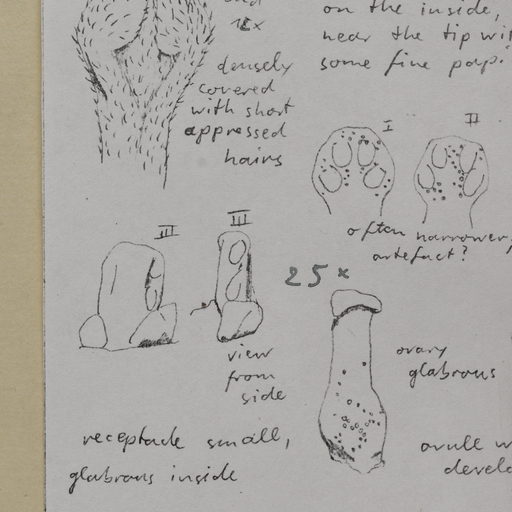 on the inside,
near the tip wi
some fine pap
densely
covered
with short
appressed
hairs
I II
often narrower,
artefact?
III III
25 x
view
from
side
ovary
glabrous
receptacle small,
glabrous inside
ovule w
develo